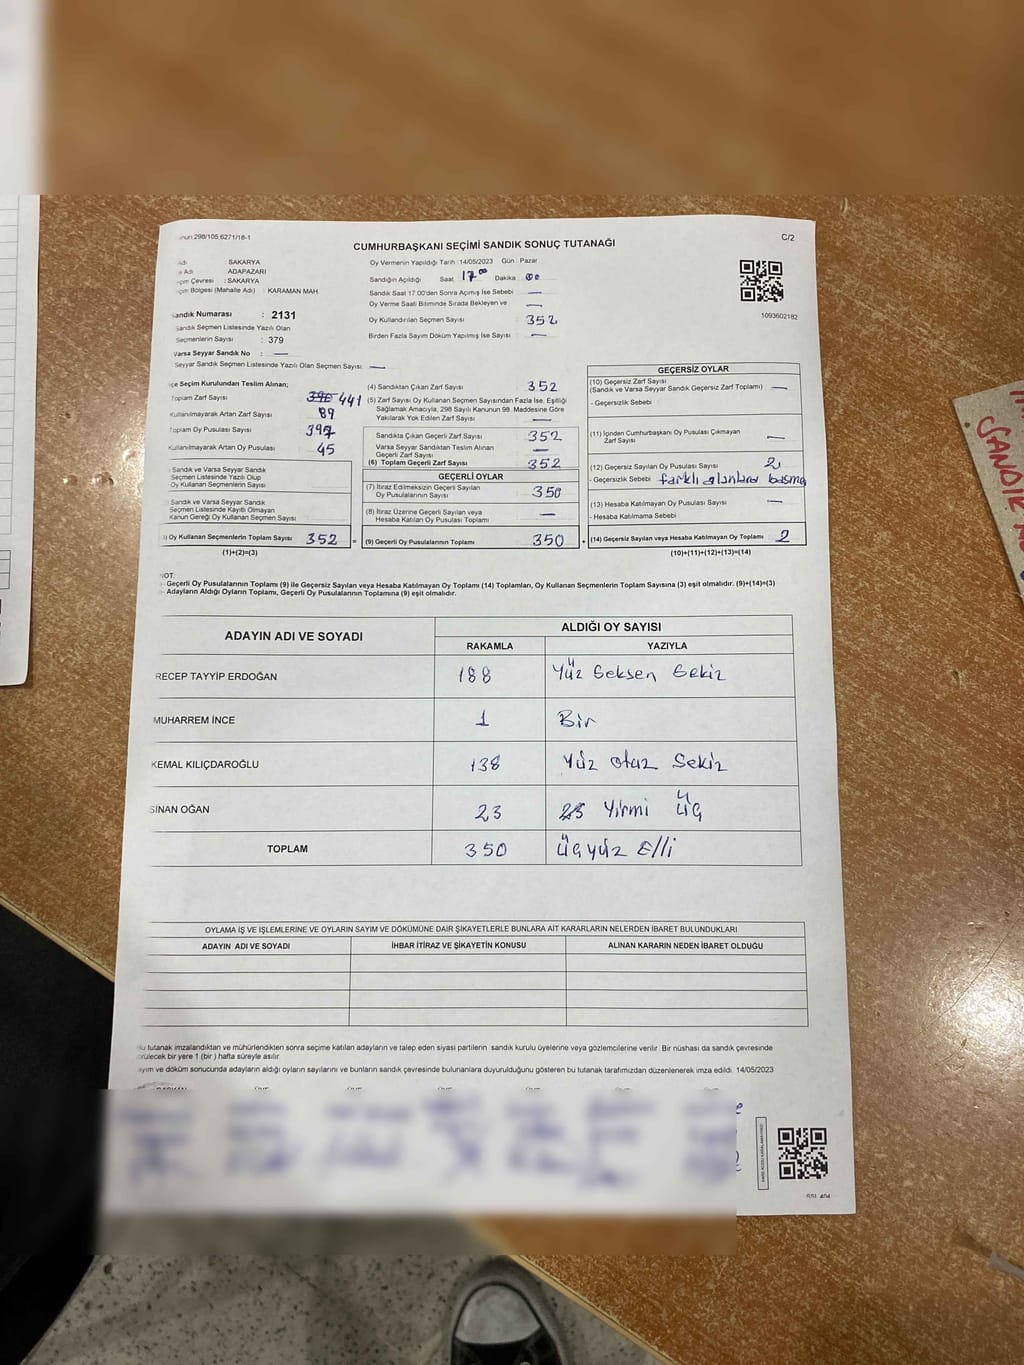 298/105,6271/18-1
C/2
CUMHURBAŞKANI SEÇİMİ SANDIK SONUÇ TUTANAĞI
: SAKARYA
Adı : ADAPAZARI
Çevresi : SAKARYA
Bölgesi (Mahalle Adı) : KARAMAN MAH.
Sandık Numarası : 2131
Sandık Seçmen Listesinde Yazılı Olan
Seçmenlerin Sayısı : 379
Varsa Seyyar Sandık No : —
Seyyar Sandık Seçmen Listesinde Yazılı Olan Seçmen Sayısı: —
Oy Vermenin Yapıldığı Tarih :14/05/2023 Gün : Pazar
Sandığın Açıldığı Saat 17 00 Dakika 00
Sandık Saat 17.00'den Sonra Açılmış İse Sebebi —
Oy Verme Saati Bitiminde Sırada Bekleyen ve —
Oy Kullandırılan Seçmen Sayısı 352
Birden Fazla Sayım Döküm Yapılmış İse Sayısı —
1093602182
İlçe Seçim Kurulundan Teslim Alınan;
Toplam Zarf Sayısı 441
Kullanılmayarak Artan Zarf Sayısı 89
Toplam Oy Pusulası Sayısı 397
Kullanılmayarak Artan Oy Pusulası 45
Sandık ve Varsa Seyyar Sandık
Seçmen Listesinde Yazılı Olup
Oy Kullanan Seçmenlerin Sayısı
Sandık ve Varsa Seyyar Sandık
Seçmen Listesinde Kayıtlı Olmayan
Kanun Gereği Oy Kullanan Seçmen Sayısı
Oy Kullanan Seçmenlerin Toplam Sayısı 352 =
(1)+(2)=(3)
(4) Sandıktan Çıkan Zarf Sayısı 352
(5) Zarf Sayısı Oy Kullanan Seçmen Sayısından Fazla İse, Eşitliği
Sağlamak Amacıyla, 298 Sayılı Kanunun 98. Maddesine Göre
Yakılarak Yok Edilen Zarf Sayısı —
Sandıkta Çıkan Geçerli Zarf Sayısı 352
Varsa Seyyar Sandıktan Teslim Alınan
Geçerli Zarf Sayısı —
(6) Toplam Geçerli Zarf Sayısı 352
GEÇERLİ OYLAR
(7) İtiraz Edilmeksizin Geçerli Sayılan
Oy Pusulalarının Sayısı 350
(8) İtiraz Üzerine Geçerli Sayılan veya
Hesaba Katılan Oy Pusulası Toplamı —
(9) Geçerli Oy Pusulalarının Toplamı 350 +
GEÇERSİZ OYLAR
(10) Geçersiz Zarf Sayısı
(Sandık ve Varsa Seyyar Sandık Geçersiz Zarf Toplamı) —
- Geçersizlik Sebebi
(11) İçinden Cumhurbaşkanı Oy Pusulası Çıkmayan
Zarf Sayısı —
(12) Geçersiz Sayılan Oy Pusulası Sayısı 2
- Geçersizlik Sebebi farklı alanlara basma
(13) Hesaba Katılmayan Oy Pusulası Sayısı —
- Hesaba Katılmama Sebebi
(14) Geçersiz Sayılan veya Hesaba Katılmayan Oy Toplamı 2
(10)+(11)+(12)+(13)=(14)
NOT:
- Geçerli Oy Pusulalarının Toplamı (9) ile Geçersiz Sayılan veya Hesaba Katılmayan Oy Toplamı (14) Toplamları, Oy Kullanan Seçmenlerin Toplam Sayısına (3) eşit olmalıdır. (9)+(14)=(3)
- Adayların Aldığı Oyların Toplamı, Geçerli Oy Pusulalarının Toplamına (9) eşit olmalıdır.
ADAYIN ADI VE SOYADI
ALDIĞI OY SAYISI
RAKAMLA YAZIYLA
RECEP TAYYİP ERDOĞAN 188 Yüz Seksen Sekiz
MUHARREM İNCE 1 Bir
KEMAL KILIÇDAROĞLU 138 Yüz otuz Sekiz
SİNAN OĞAN 23 Yirmi Üç
TOPLAM 350 Üçyüz Elli
OYLAMA İŞ VE İŞLEMLERİNE VE OYLARIN SAYIM VE DÖKÜMÜNE DAİR ŞİKAYETLERLE BUNLARA AİT KARARLARIN NELERDEN İBARET BULUNDUKLARI
ADAYIN ADI VE SOYADI İHBAR İTİRAZ VE ŞİKAYETİN KONUSU ALINAN KARARIN NEDEN İBARET OLDUĞU
tutanak imzalandıktan ve mühürlendikten sonra seçime katılan adayların ve talep eden siyasi partilerin sandık kurulu üyelerine veya gözlemcilerine verilir. Bir nüshası da sandık çevresinde
görülecek bir yere 1 (bir) hafta süreyle asılır.
Sayım ve döküm sonucunda adayların aldığı oyların sayılarını ve bunların sandık çevresinde bulunanlara duyurulduğunu gösteren bu tutanak tarafımızdan düzenlenerek imza edildi. 14/05/2023
SANDIK